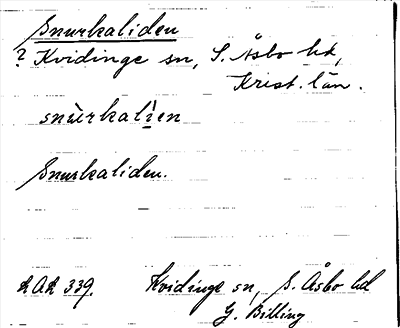 Snurkaliden
? Kvidinge sn, S. Åsbo hd,
Krist. län.
snùrkalìen
Snurkaliden.
LAL 339. Kvidinge sn, S. Åsbo hd
G. Billing